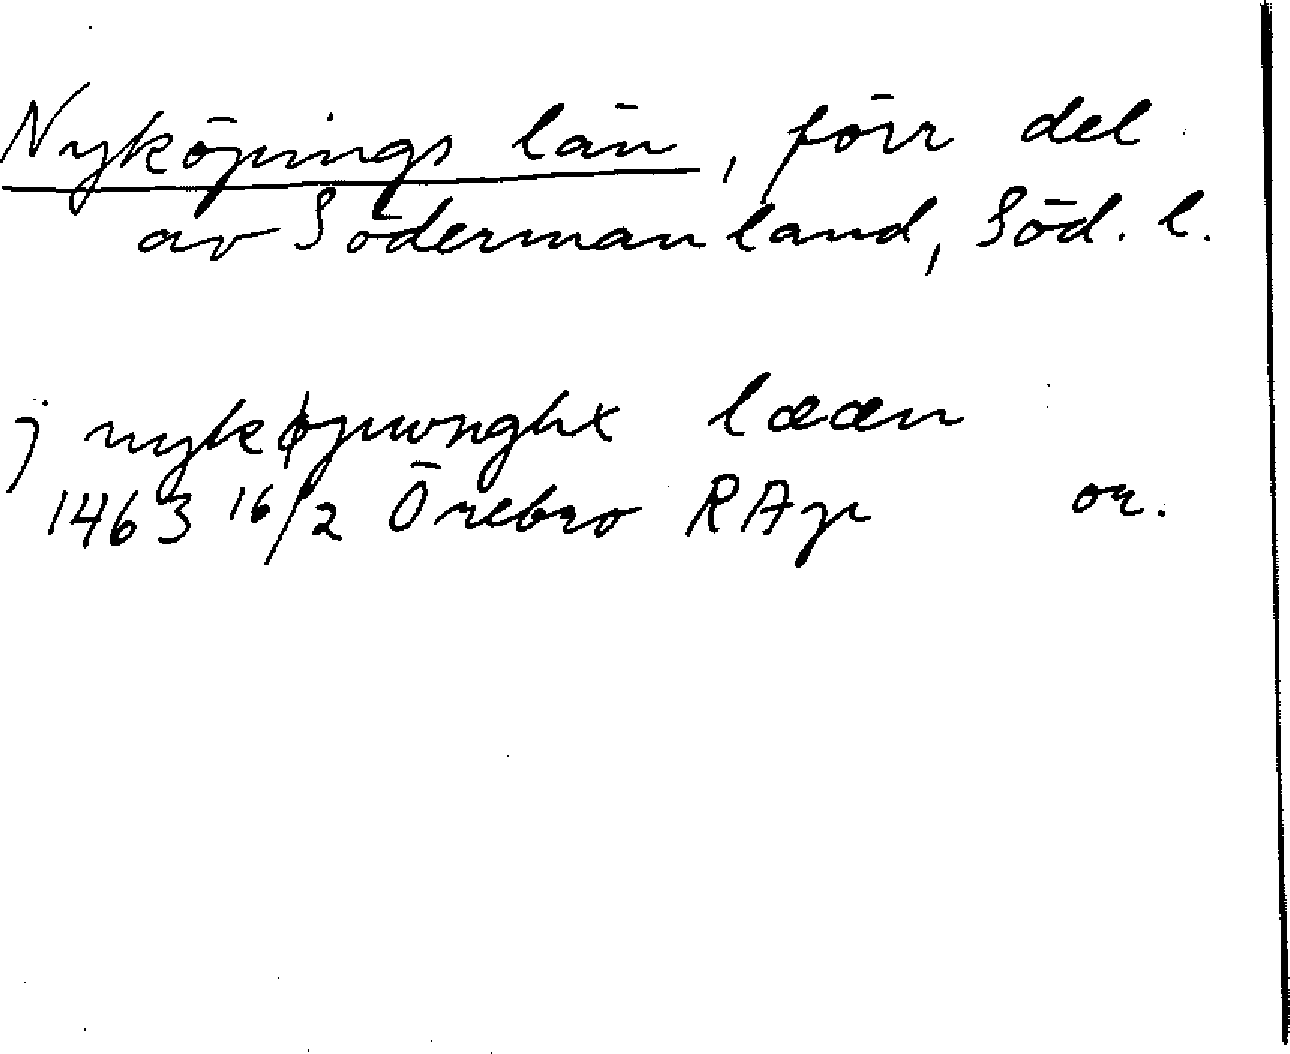 Nyköpings län, förr del
av Södermanland, Söd. l.
j nykøpunghx lææn
1463 16/2 Örebro RAp or.